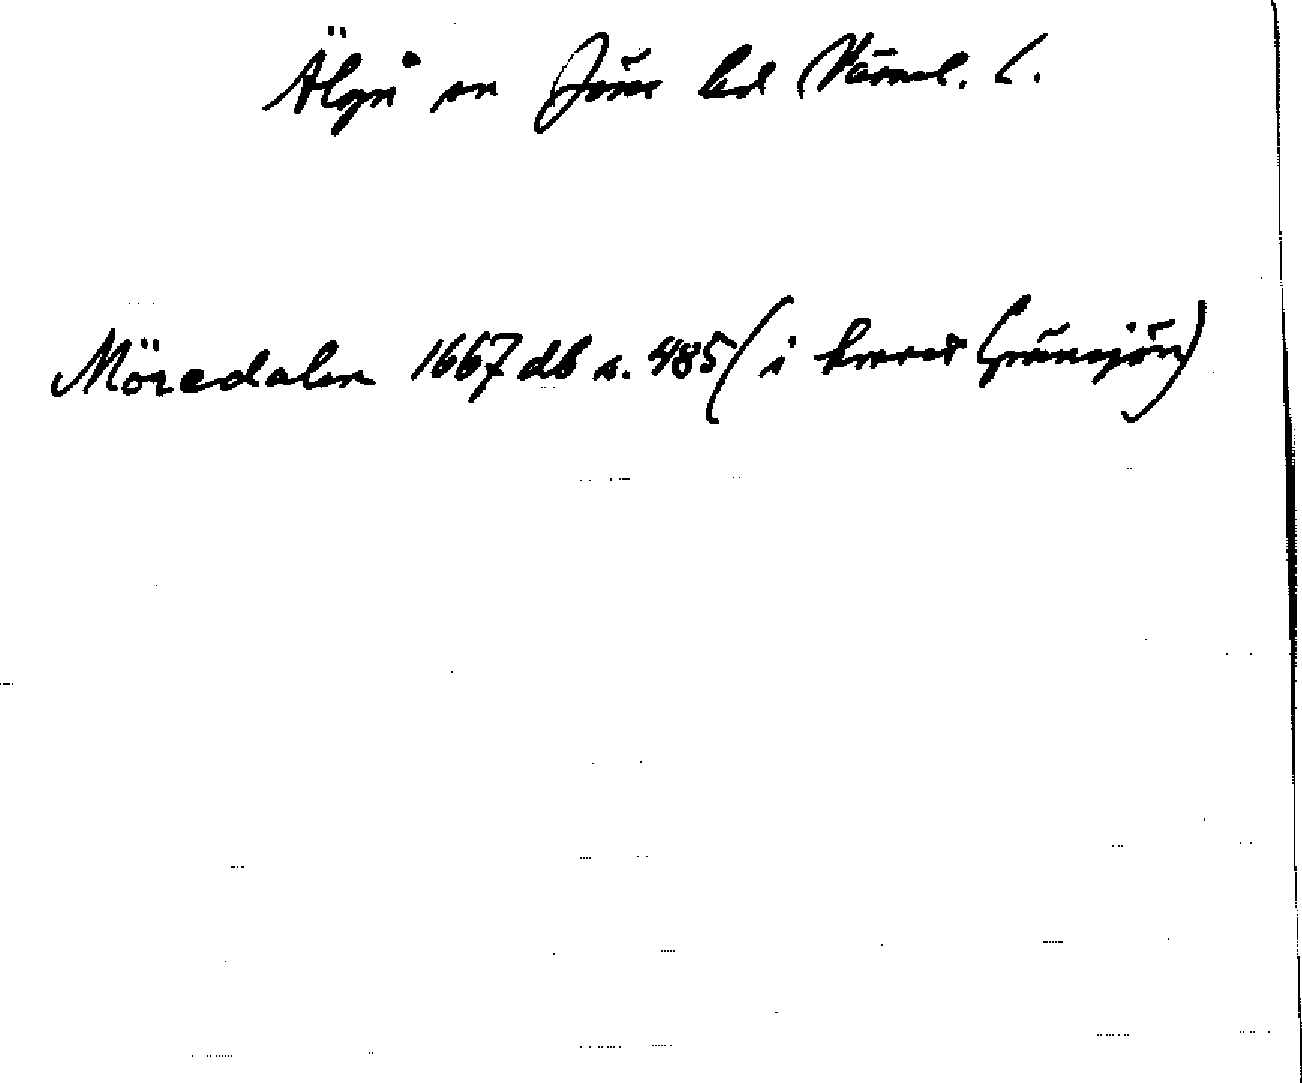 Älgå sn Jösse hd Värml. l.
Möredalen 1667 db s. 485 (i trakt Gränsjön)